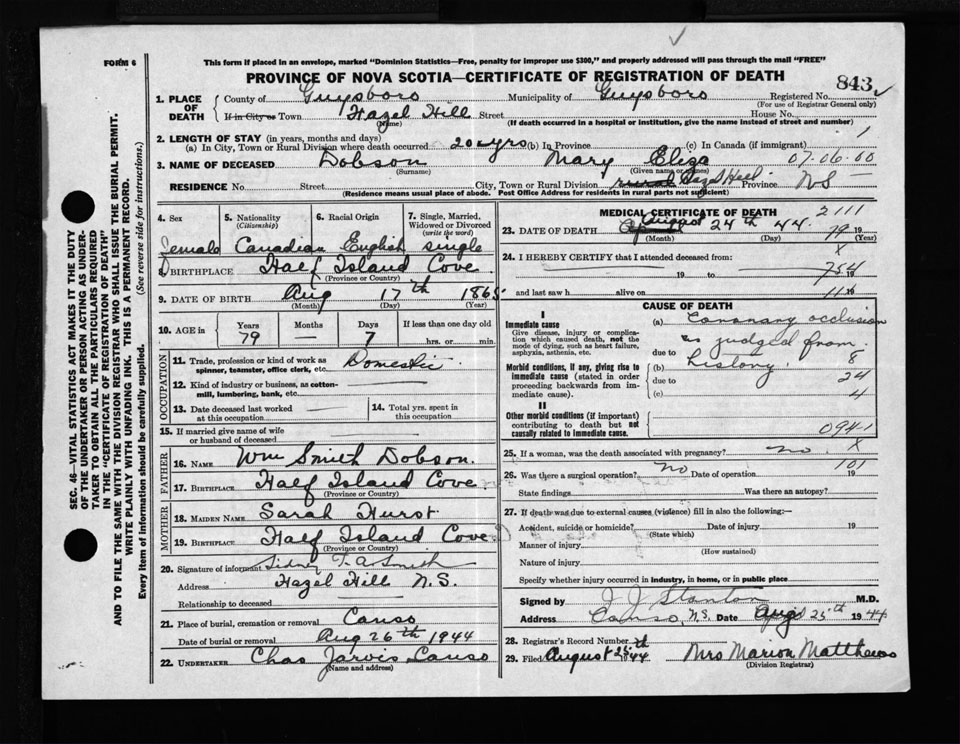 FORM 6
This form if placed in an envelope, marked "Dominion Statistics—Free, penalty for improper use $300," and properly addressed will pass through the mail "FREE"
PROVINCE OF NOVA SCOTIA—CERTIFICATE OF REGISTRATION OF DEATH
843
SEC. 46—VITAL STATISTICS ACT MAKES IT THE DUTY OF THE UNDERTAKER OR PERSON ACTING AS UNDERTAKER TO OBTAIN ALL THE PARTICULARS REQUIRED IN THE "CERTIFICATE OF REGISTRATION OF DEATH"
AND TO FILE THE SAME WITH THE DIVISION REGISTRAR WHO SHALL ISSUE THE BURIAL PERMIT.
WRITE PLAINLY WITH UNFADING INK. THIS IS A PERMANENT RECORD.
Every item of Information should be carefully supplied. (See reverse side for instructions.)
1. PLACE OF DEATH
County of Guysboro Municipality of Guysboro Registered No.
(For use of Registrar General only)
If in City or Town Hazel Hill Street House No.
(Name) (If death occurred in a hospital or institution, give the name instead of street and number)
2. LENGTH OF STAY (in years, months and days)
(a) In City, Town or Rural Division where death occurred 20 yrs (b) In Province (c) In Canada (if immigrant) 1
3. NAME OF DECEASED Dobson Mary Eliza 07.06.00
(Surname) (Given name or names)
RESIDENCE No. Street City, Town or Rural Division Hazel Hill Province NS
(Residence means usual place of abode. Post Office Address for residents in rural parts not sufficient)
4. Sex Female
5. Nationality (Citizenship) Canadian
6. Racial Origin English
7. Single, Married, Widowed or Divorced (write the word) single
8. BIRTHPLACE Half Island Cove
(Province or Country)
9. DATE OF BIRTH Aug 17th 1865
(Month) (Day) (Year)
10. AGE in Years 79 Months — Days 7 If less than one day old hrs. or min.
OCCUPATION
11. Trade, profession or kind of work as spinner, teamster, office clerk, etc. Domestic
12. Kind of industry or business, as cotton-mill, lumbering, bank, etc.
13. Date deceased last worked at this occupation
14. Total yrs. spent in this occupation
15. If married give name of wife or husband of deceased
FATHER
16. NAME Wm Smith Dobson.
17. BIRTHPLACE Half Island Cove.
(Province or Country)
MOTHER
18. MAIDEN NAME Sarah Hurst
19. BIRTHPLACE Half Island Cove
(Province or Country)
20. Signature of informant T. A Smith
Address Hazel Hill N.S.
Relationship to deceased
21. Place of burial, cremation or removal Canso
Date of burial or removal Aug 26th 1944
22. UNDERTAKER Chas Jarvis Canso
(Name and address)
MEDICAL CERTIFICATE OF DEATH 2111
23. DATE OF DEATH August 24th 44. 79 19
(Month) (Day) (Year)
24. I HEREBY CERTIFY that I attended deceased from: X
19 to 19
and last saw h alive on 19
CAUSE OF DEATH
I
Immediate cause
Give disease, injury or complication which caused death, not the mode of dying, such as heart failure, asphyxia, asthenia, etc.
(a) Coronary occlusion
as judged from
due to
(b) history. 8
Morbid conditions, if any, giving rise to immediate cause (stated in order proceeding backwards from immediate cause).
due to 24
(c) 4
II
Other morbid conditions (if important) contributing to death but not causally related to immediate cause.
0941
25. If a woman, was the death associated with pregnancy? no. X
26. Was there a surgical operation? no Date of operation 101 19
State findings Was there an autopsy?
27. If death was due to external causes (violence) fill in also the following:—
Accident, suicide or homicide? Date of injury 19
(State which)
Manner of injury
(How sustained)
Nature of injury
Specify whether injury occurred in industry, in home, or in public place
Signed by J J Stanton M.D.
Address Canso, N.S. Date Aug 25th 1944
28. Registrar's Record Number
29. Filed August 25th 1944 Mrs Marion Matthews
(Division Registrar)